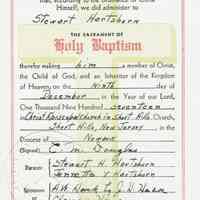 that, according to the ordinance of Christ
Himself, we did administer to
Stewart Hartshorn
THE SACRAMENT OF
Holy Baptism
thereby making him a member of Christ,
the Child of God, and an Inheritor of the Kingdom
of Heaven, on the Ninth day
December in the Year of our Lord,
One Thousand Nine Hundred seventeen
Christ Episcopal Church in Short Hills, Church,
Short Hills, New Jersey, in the
Diocese of Newark
(Signed) C. M. Douglas
Parents Stewart H. Hartshorn
Hartshorn
Sponsors